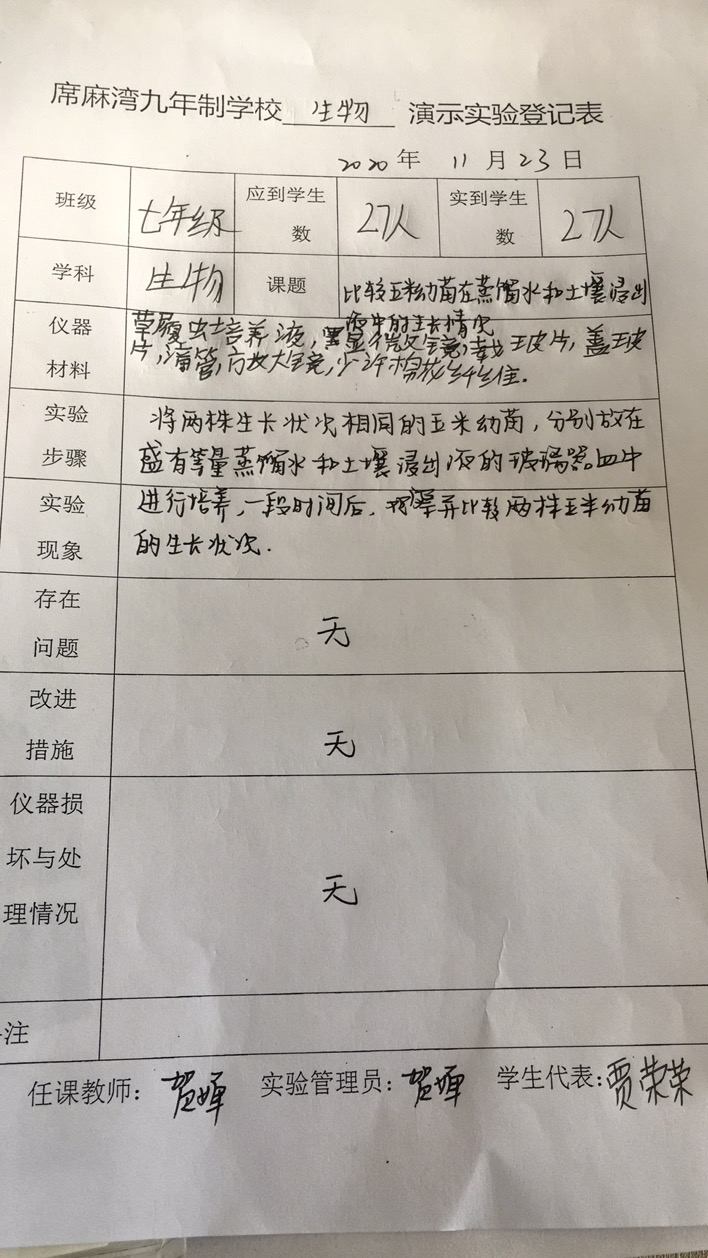 席麻湾九年制学校 生物 演示实验登记表
2020年 11月23日
班级 七年级 应到学生数 27人 实到学生数 27人
学科 生物 课题 比较玉米幼苗在蒸馏水和土壤浸出
液中的生长情况
仪器 草履虫培养液,显微镜,载玻片,盖玻
材料 片,滴管,放大镜,少许棉花纤维.
实验 将两株生长状况相同的玉米幼苗,分别放在
步骤 盛有等量蒸馏水和土壤浸出液的玻璃器皿中
实验 进行培养,一段时间后,观察并比较两株玉米幼苗
现象 的生长状况.
存在
问题 无
改进
措施 无
仪器损
坏与处 无
理情况
注
任课教师: 贺婵 实验管理员: 贺婵 学生代表: 贾荣荣